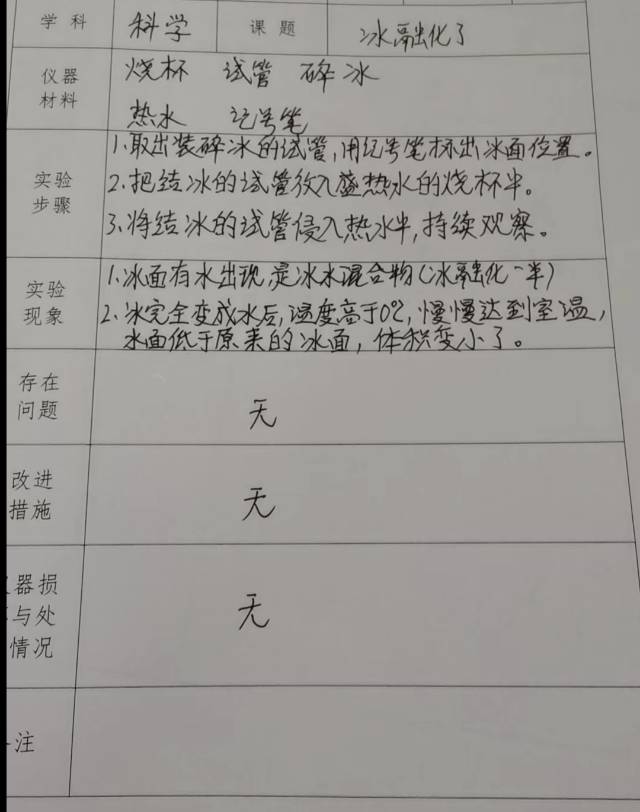 学科 科学 课题 冰融化了
仪器 烧杯 试管 碎冰
材料 热水 记号笔
1.取出装碎冰的试管,用记号笔标出冰面位置。
实验
步骤 2.把结冰的试管放入盛热水的烧杯中。
3.将结冰的试管侵入热水中,持续观察。
实验 1.冰面有水出现,是冰水混合物(冰融化一半)
现象 2.冰完全变成水后,温度高于0℃,慢慢达到室温,
水面低于原来的冰面,体积变小了。
存在
问题 无
改进
措施 无
器损
与处 无
情况
注